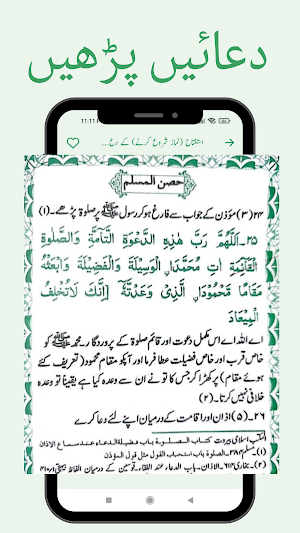 دعائیں پڑھیں
11:11
استفتاح (نماز شروع کرنے) کے دع...
حصن المسلم
۲۴(۳) مؤذن کے جواب سے فارغ ہو کر رسول ﷺ پر صلوٰۃ پڑھے۔(۱)
۲۵۔ اَللّٰهُمَّ رَبَّ هٰذِهِ الدَّعْوَةِ التَّآمَّةِ وَالصَّلٰوةِ
الْقَآئِمَةِ اٰتِ مُحَمَّدَاِ الْوَسِيْلَةَ وَالْفَضِيْلَةَ وَابْعَثْهُ
مَقَامًا مَّحْمُوْدَاِ الَّذِىْ وَعَدْتَّهٗ [اِنَّكَ لَاتُخْلِفُ
الْمِيْعَادَ
اے اللہ اس مکمل دعوت اور قائم صلوٰۃ کے پروردگار، محمد ﷺ کو
خاص قرب اور خاص فضیلت عطا فرما اور آپکو مقام محمود (تعریف کئے
ہوئے مقام) پر کھڑا کر جس کا تو نے ان سے وعدہ کیا ہے یقیناً تو وعدہ
خلافی نہیں کرتا۔(۲)
۲۶۔(۵) اذان اور اقامت کے درمیان اپنے لئے دعا کرے